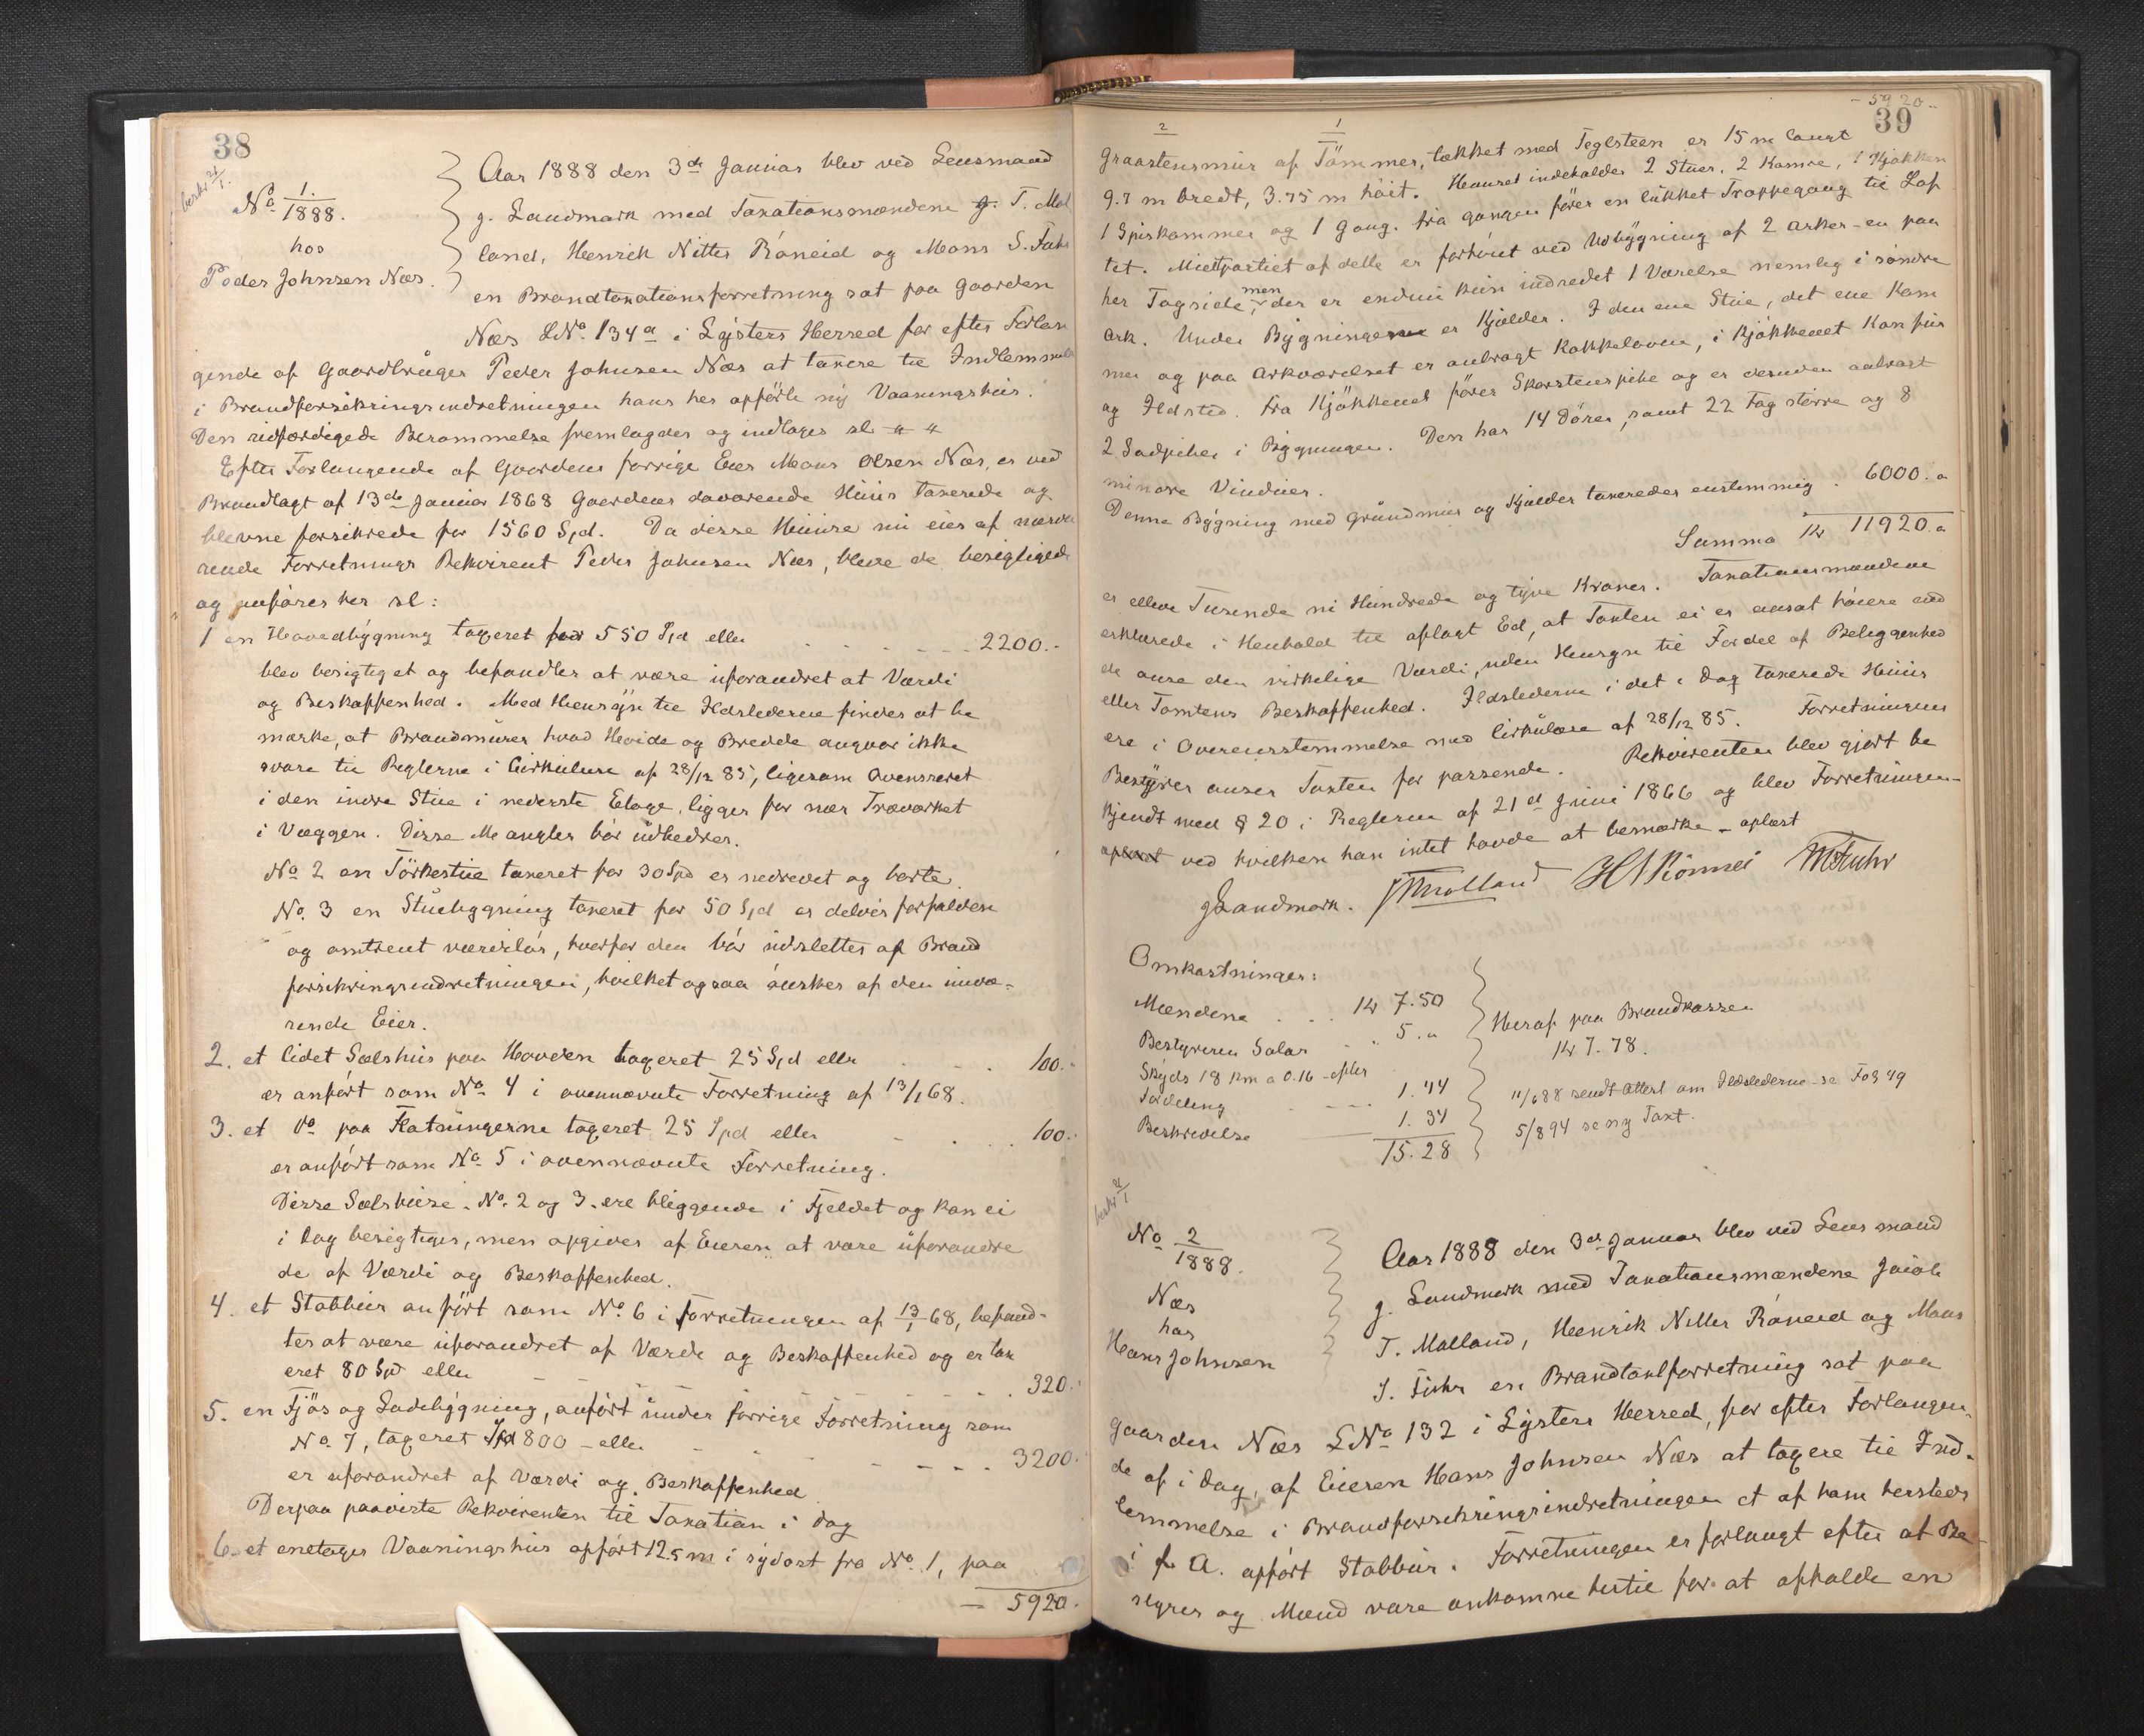 38
beskr 21/1.
No 1./1888.
hos
Peder Johnsen Næs.
Aar 1888 den 3de Januar blev ved Lensmand
J. Landmark med Taxationsmændene J. T. Mol
land, Henrik Nitter Röneid og Mons S. Fuhr
en Brandtaxationsforretning sat paa Gaarden
Næs LNo 134a i Lysters Herred for efter Forlan
gende af Gaardbruger Peder Johnsen Næs at taxere til Indlemmelse
i Brandforsikringsindretningen hans her opförte ny Vaaningshus.
Den udfærdigede Berammelse fremlagdes og indtages sl " "
Efter Forlangende af Gaardens forrige Eier Mons Olsen Næs, er ved
Brandtaxt af 13de Januar 1868 Gaardens daværende Huus taxerede og
blevne forsikrede for 1560 Spd. Da disse Huuse nu eies af nærvæ
rende Forretnings Rekvirent Peder Johnsen Næs, bleve de besigtigede
og anföres her sl:
1 en Hovedbygning taxeret for 550 Spd eller 2200.-
blev besigtiget og befandtes at være uforandret at Værdi
og Beskaffenhed. Med Hensyn til Ildstederne findes at be
mærke, at Brandmurer hvad Höide og Bredde angaar ikke
svare til Reglerne i Cirkulære af 28/12 85, ligesom Ovensröret
i den indre Stue i nederste Etage, ligger for nær Træværket
i Væggen. Disse Mangler bör udbedres.
No 2 en Törkestue taxeret for 30 Spd er nedrevet og borte.
No. 3 en Stuebygning taxeret for 50 Spd er delvis forfalden
og omtrent værdilös, hvorfor den bör udslettes af Brand
forsikringsindretningen, hvilket ogsaa önskes af den nuvæ-
rende Eier.
2. et lidet Sælshus paa Hovden taxeret 25 Spd eller 100.-
er anfört som No 4 i ovennævnte Forretning af 13/1 68.
3. et Do paa Flatningerne taxeret 25 Spd eller 100.-
er anfört som No 5 i ovennævnte Forretning.
Disse Sælshuse No. 2 og 3. ere beliggende i Fjeldet og kan ei
i Dag besigtiges, men opgives af Eieren at være uforandre
de af Værdi og Beskaffenhed.
4. et Stabbur anfört som No 6 i Forretningen af 13/1 68, befand-
tes at være uforandret af Værdi og Beskaffenhed og er tax
eret 80 Spd eller 320.-
5. en Fjös og Ladebygning, anfört under forrige Forretning som
No. 7, taxeret Spd 800 - eller 3200.
er uforandret af Værdi og Beskaffenhed
Derpaa paaviste Rekvirenten til Taxation i Dag
6. et enetages Vaaningshus opfört 12.5 m i sydost fra No 1, paa
5920.
- 5920..
39
2 1
Graastensmur af Tömmer, tækket med Teglsteen er 15 m langt
9.7 m bredt, 3.75 m höit. Hueset indeholder 2 Stuer, 2 Kamre, 1 Kjökken
1 Spiskammer og 1 Gang. Fra gangen förer en lukket Trappegang til Lof
tet. Midtpartiet af dette er forhöiet ved Udbygning af 2 Arker - en paa
hver Tagside, men der er endnu kun indredet 1 Værelse nemlig i söndre
Ark. Under Bygningerne er Kjelder. I den ene Stue, det ene Kam
mer og paa Arkværelset er anbragt Kakkelovne, i Kjökkenet Komfur
og Ildsted. Fra Kjökkenet förer Skorstenspibe og er desuden anbragt
2 Ladpiber i Bygningen. Den har 14 Dörer, samt 22 Fag större og 8
mindre Vinduer.
Denne Bygning med Grundmur og Kjælder taxeredes enstemmig . 6000. "
Summa Kr 11920. "
er elleve Tusende ni Hundrede og tyve Kroner. Taxationsmændene
erklærede i Henhold til aflagt Ed, at Taxten ei er ansat höiere end
de anse den virkelige Værdi, uden Hensyn til Fordel af Beliggenhed
eller Tomtens Beskaffenhed. Ildstederne i det i Dag taxerede Huus
ere i Overensstemmelse med Cirkulære af 28/12 85. Forretningens
Bestyrer anser Taxten for passende. Rekvirenten blev gjort be
kjendt med § 20 i Reglerne af 21de Juni 1866 og blev Forretningen
oplæst ved hvilken han intet havde at bemærke - oplæst
JLandmark. JTMolland HNRönnei MSFuhr
Omkostninger:
Mændene Kr 7.50
Bestyreren Salær 5. "
Skyds 18 Km a 0.16 - efter
Fordeling 1.44
Beskrivelse 1.34
15.28
Heraf paa Brandkassen
Kr 7.78.
11/6 88 sendt Attest om Ildstederne - se Fol 49
5/8 94 se ny Taxt.
beskr 21/1
No 2/1888.
Næs
hos
Hans Johnsen
Aar 1888 den 3de Januar blev ved Lensmand
J. Landmark med Taxationsmændene Jacob
T. Molland, Henrik Nitter Röneid og Mons
S. Fuhr en Brandtaxtforretning sat paa
Gaarden Næs LNo 132 i Lysters Herred, for efter Forlangen-
de af i Dag, af Eieren Hans Johnsen Næs at taxere til Ind-
lemmelse i Brandforsikringsindretningen et af ham hersteds
i f. A. opfört Stabbur. Forretningen er forlangt efter at Be-
styrer og Mænd vare ankomne hertil for at afholde en